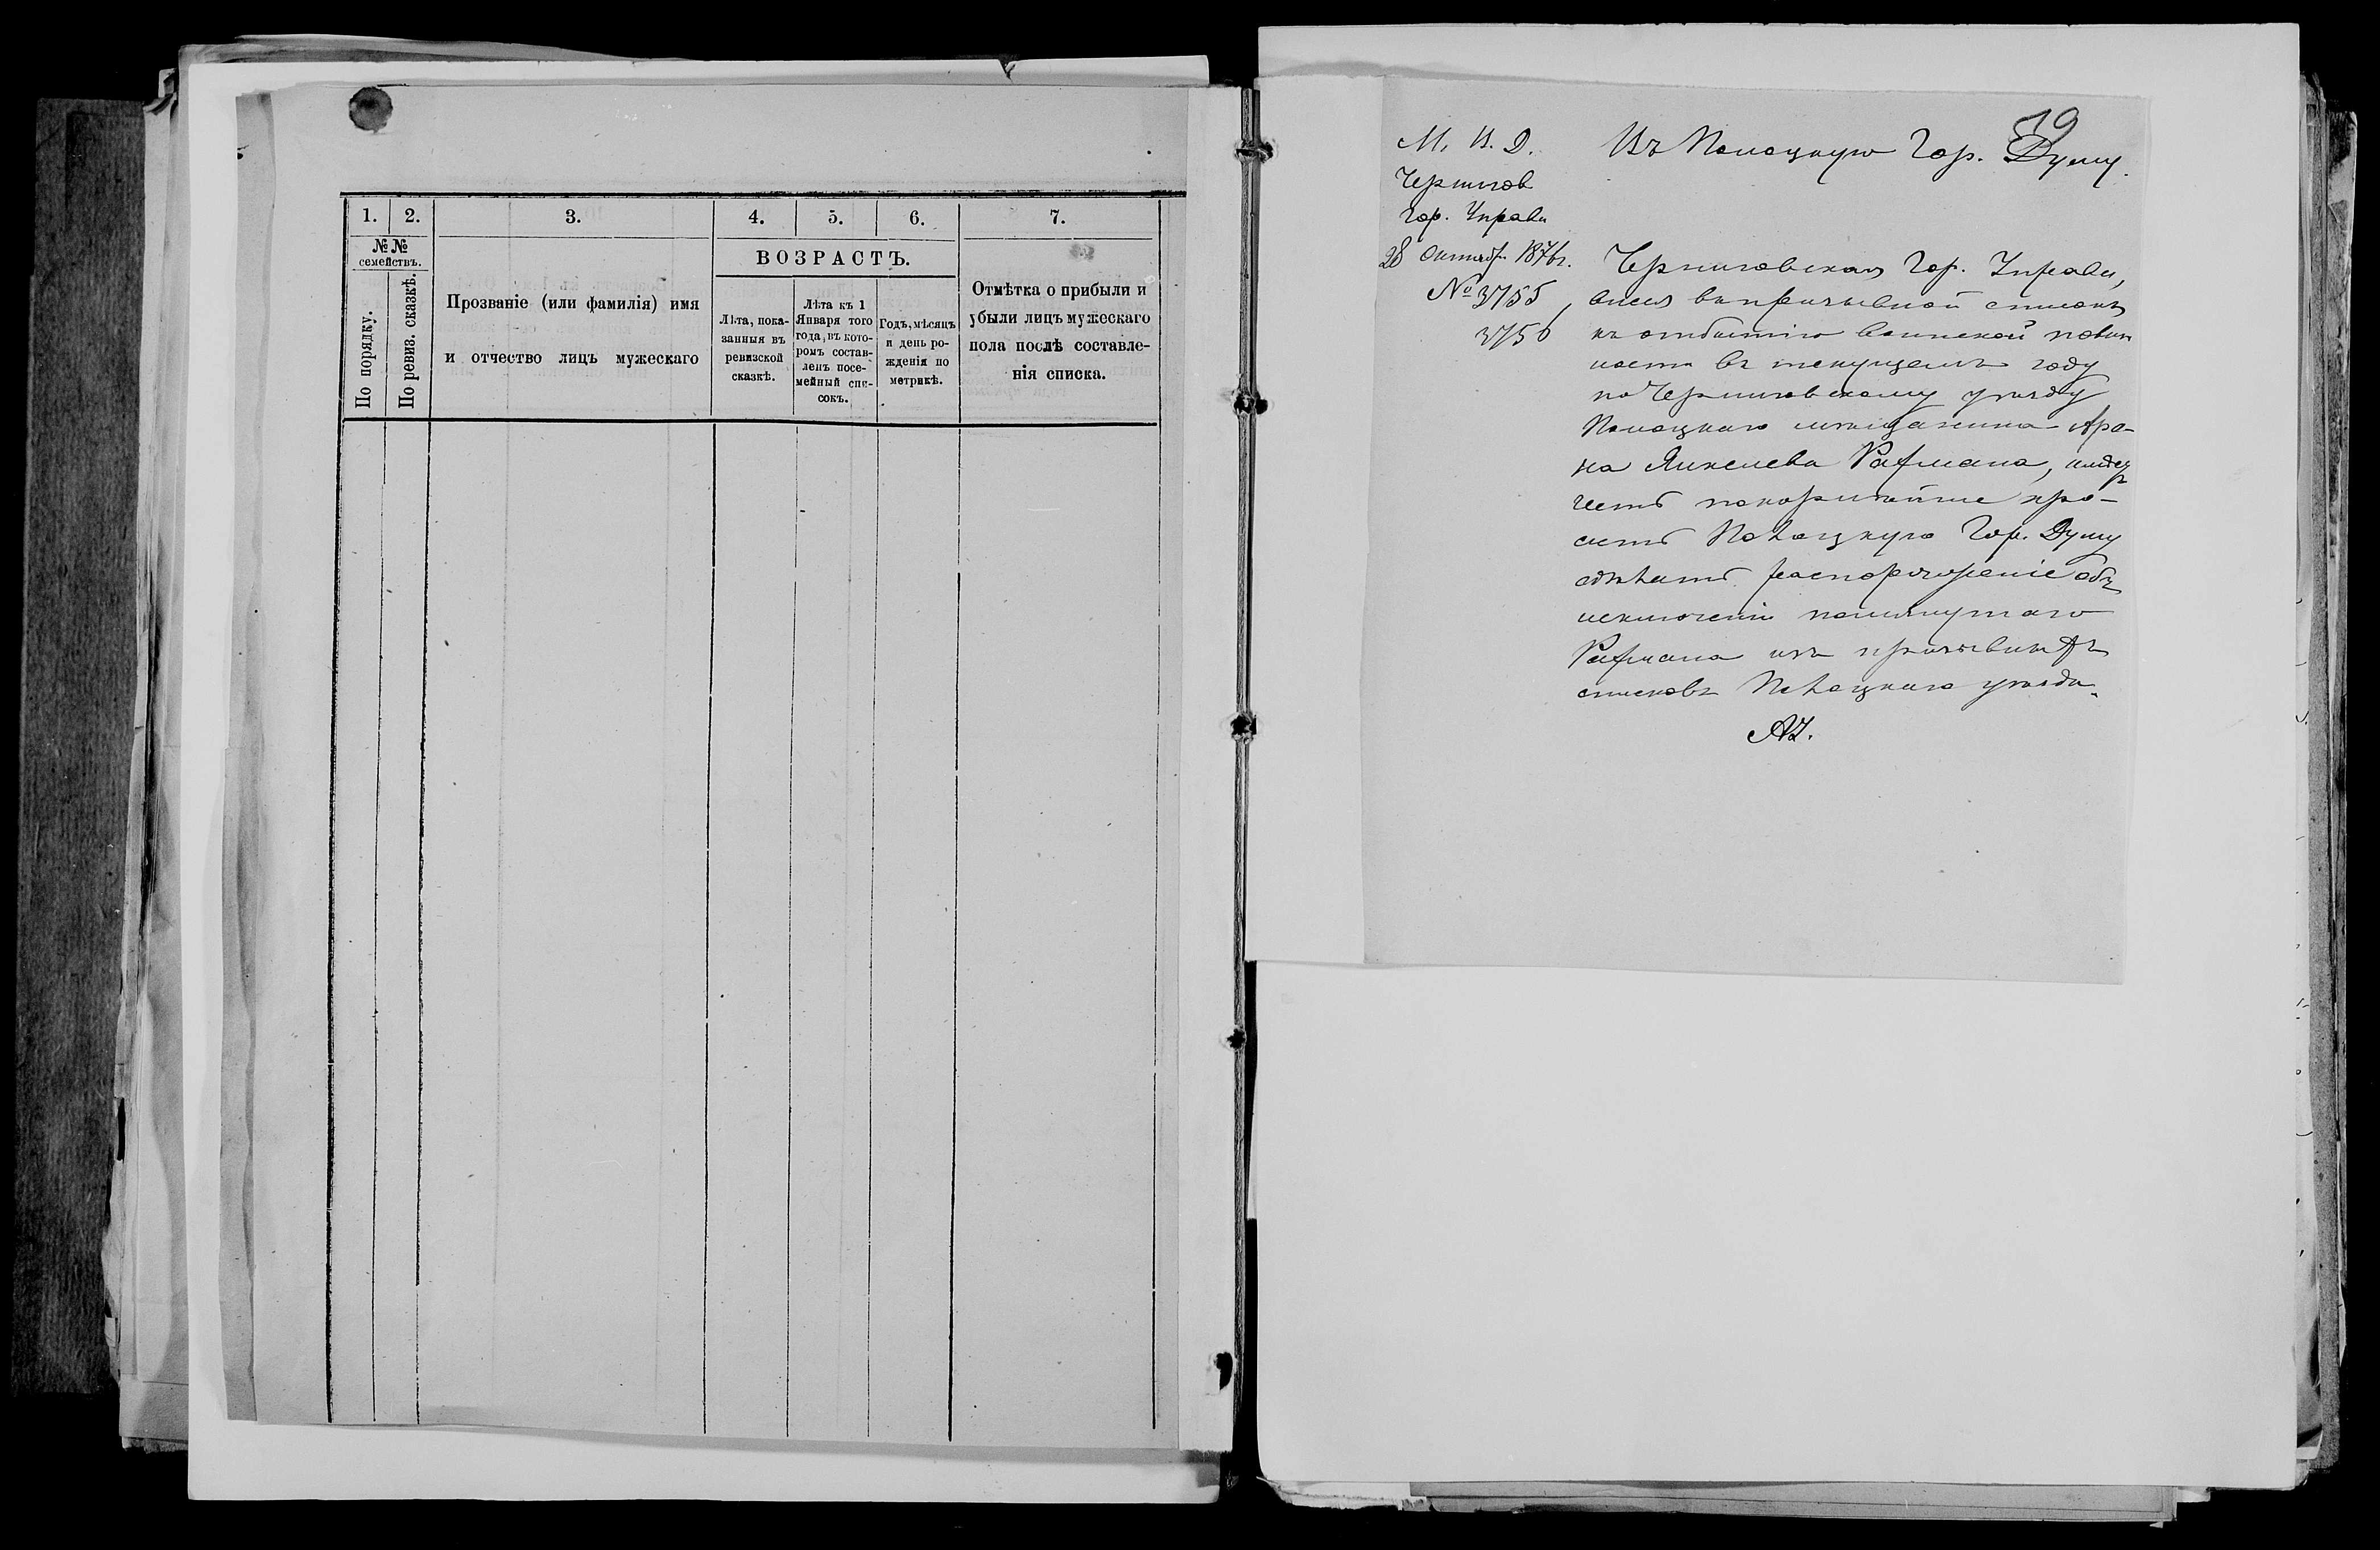 1. 2. 3. 4. 5. 6. 7.
№ № семействъ.
По порядку.
По ревиз. сказкѣ.
Прозваніе (или фамилія) имя
и отчество лицъ мужескаго
ВОЗРАСТЪ.
Лѣта, пока-
занныя въ
ревизской
сказкѣ.
Лѣта къ 1
Января того
года, въ кото-
ромъ состав-
ленъ посе-
мейный спи-
сокъ.
Годъ, мѣсяцъ
и день ро-
жденія по
метрикѣ.
Отмѣтка о прибыли и
убыли лицъ мужескаго
пола послѣ составле-
нія списка.
М. В. Д.
Чернигов
Гор. Управа
28 Октября 1876 г.
№ 3755
3756
Въ Полоцкую Гор. Думу.
Черниговская Гор. Управа,
внеся въ призывной списокъ
къ отбытію воинской повин
ности въ текущемъ году
по Черниговскому уѣзду
Полоцкаго мѣщанина Аро-
на Янкелева
честь покорнѣйше про-
сить Полоцкую Гор. Думу
сдѣлать распоряженіе объ
исключеніи помянутаго
изъ призывныхъ
списковъ Полоцкаго уѣзда.